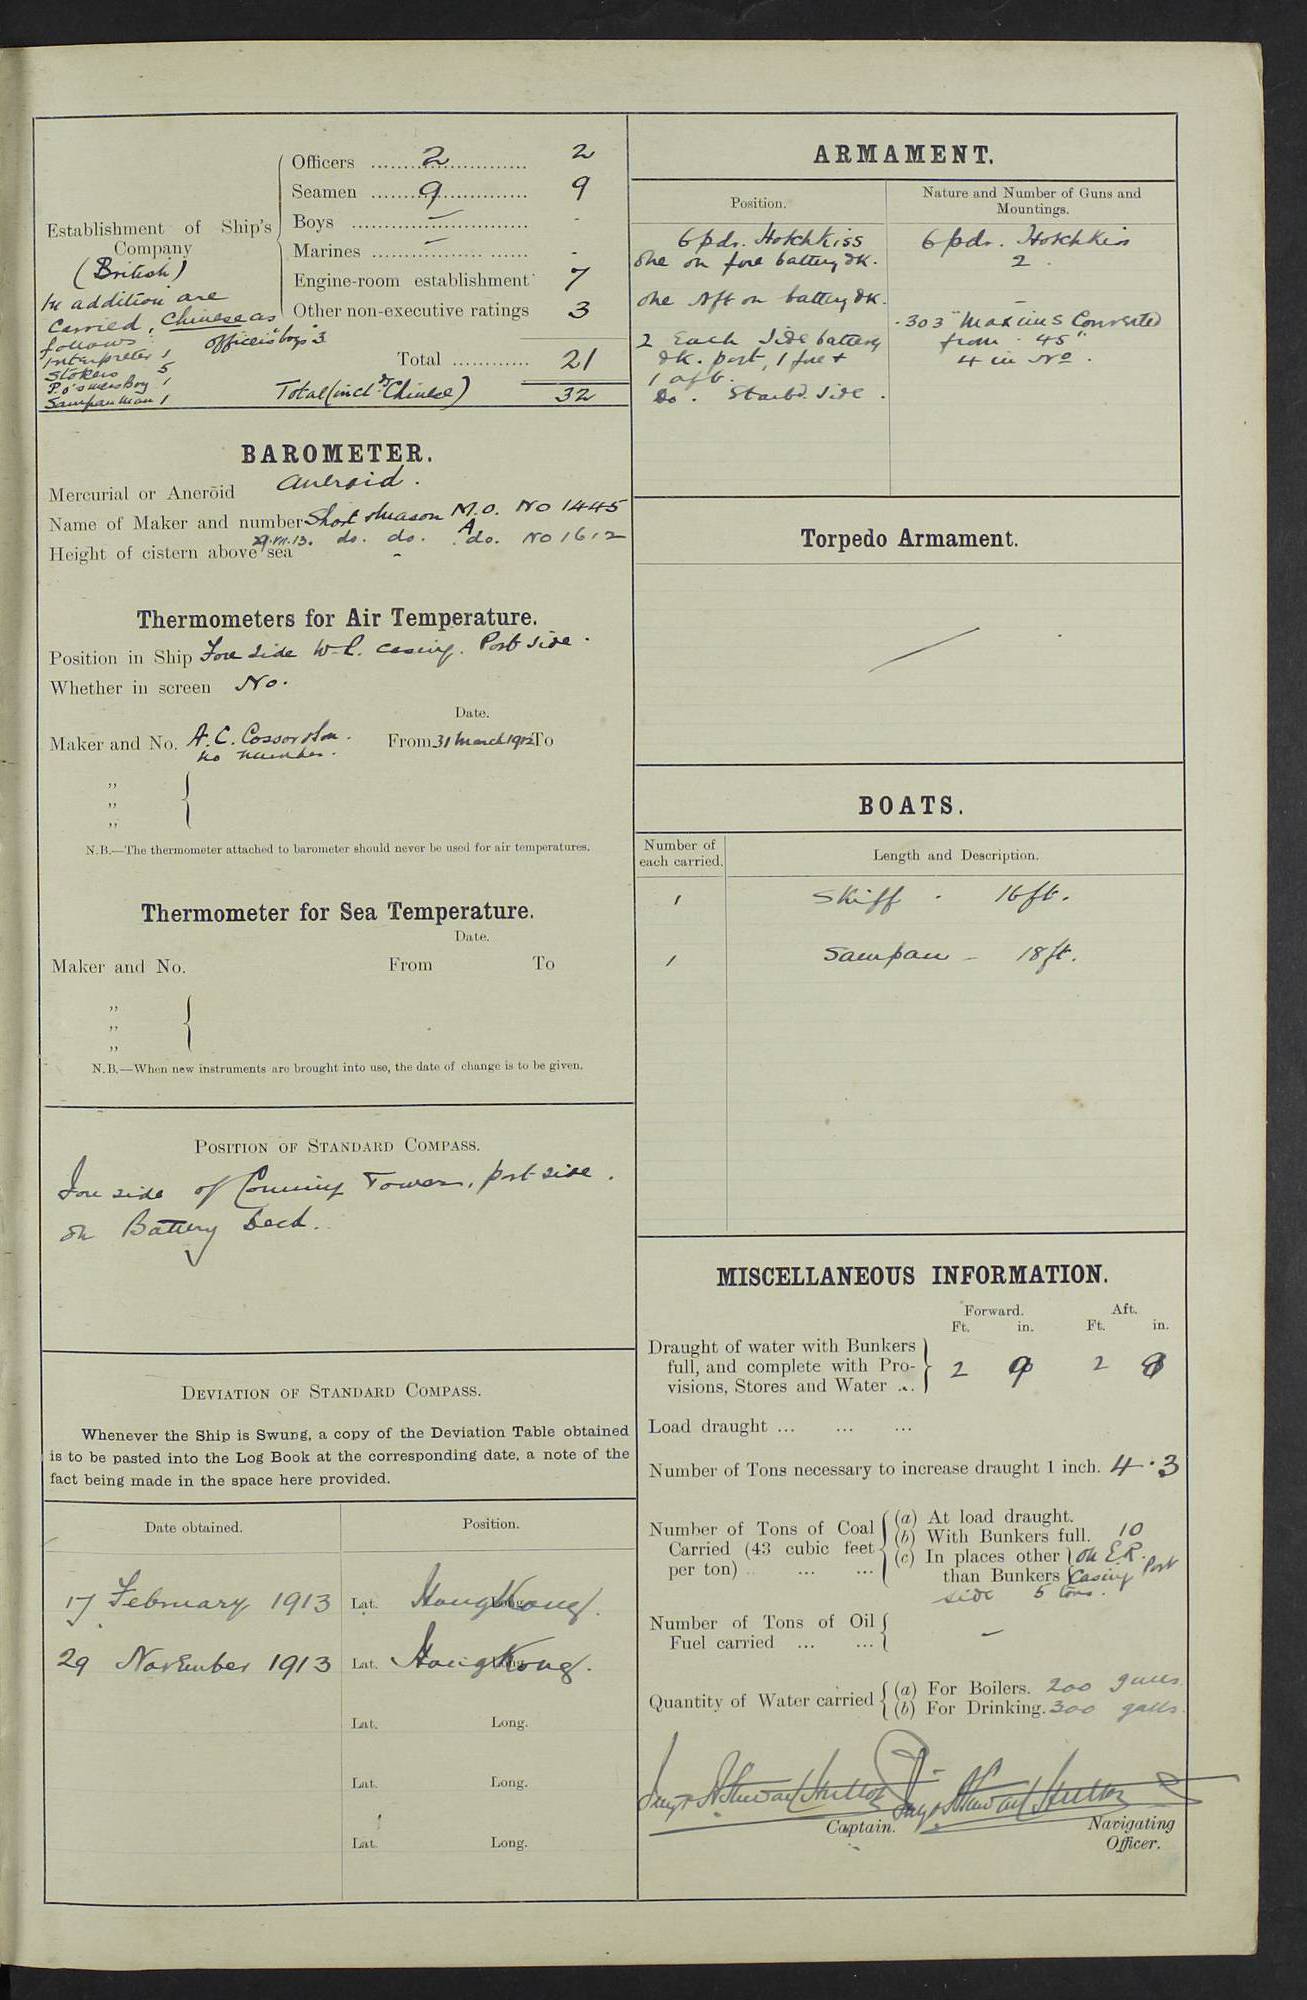 Officers 2 2
Seamen 9 9
Boys – -
Marines – -
Engine-room establishment 7
Other non-executive ratings 3
Total 21
Total (incldg Chinese) 32
Establishment of Ship's
Company
(British)
In addition are
carried, Chinese as
follows Officers "boys" 3
Interpreter 1
Stokers 5
P.O's mess Boy 1
Sampan Man 1
BAROMETER.
Mercurial or Aneroid Aneroid.
Name of Maker and number Short & Mason M.O. No 1445
29.M.13. do. do. A do. No 1612
Height of cistern above sea -
Thermometers for Air Temperature.
Position in Ship Fore side W-L. casing. Port side.
Whether in screen No.
Date.
Maker and No. A. C. Cossor & Son. From 31 March 1912 To
no number.
"
"
"
N.B.—The thermometer attached to barometer should never be used for air temperatures.
Thermometer for Sea Temperature.
Date.
Maker and No. From To
"
"
"
N.B.—When new instruments are brought into use, the date of change is to be given.
POSITION OF STANDARD COMPASS.
Fore side of Conning Tower, port side.
on Battery Deck.
DEVIATION OF STANDARD COMPASS.
Whenever the Ship is Swung, a copy of the Deviation Table obtained
is to be pasted into the Log Book at the corresponding date, a note of the
fact being made in the space here provided.
Date obtained. Position.
17 February 1913 Lat. Hong Kong. Long.
29 November 1913 Lat. Hong Kong. Long.
Lat. Long.
Lat. Long.
Lat. Long.
ARMAMENT.
Position. Nature and Number of Guns and
Mountings.
6 pdr. Hotchkiss 6 pdr. Hotchkiss
One on fore battery dk. 2.
One Aft on battery dk. –
2 Each side battery .303" Maxims Converted
dk. port, 1 fore + from .45"
1 aft. 4 in No.
Do. Starbd. side.
Torpedo Armament.
BOATS.
Number of
each carried. Length and Description.
1 Skiff - 16 ft.
1 Sampan - 18 ft.
MISCELLANEOUS INFORMATION.
Forward. Aft.
Ft. in. Ft. in.
Draught of water with Bunkers
full, and complete with Pro-
visions, Stores and Water ... 2 2
Load draught ... ... ...
Number of Tons necessary to increase draught 1 inch. 4.3
Number of Tons of Coal
Carried (43 cubic feet
per ton) ... ...
(a) At load draught.
(b) With Bunkers full. 10
(c) In places other on E.R.
than Bunkers Casing Port
side 5 tons.
Number of Tons of Oil
Fuel carried ... ... –
Quantity of Water carried
(a) For Boilers. 200 galls.
(b) For Drinking. 300 galls.
Captain.
Navigating
Officer.